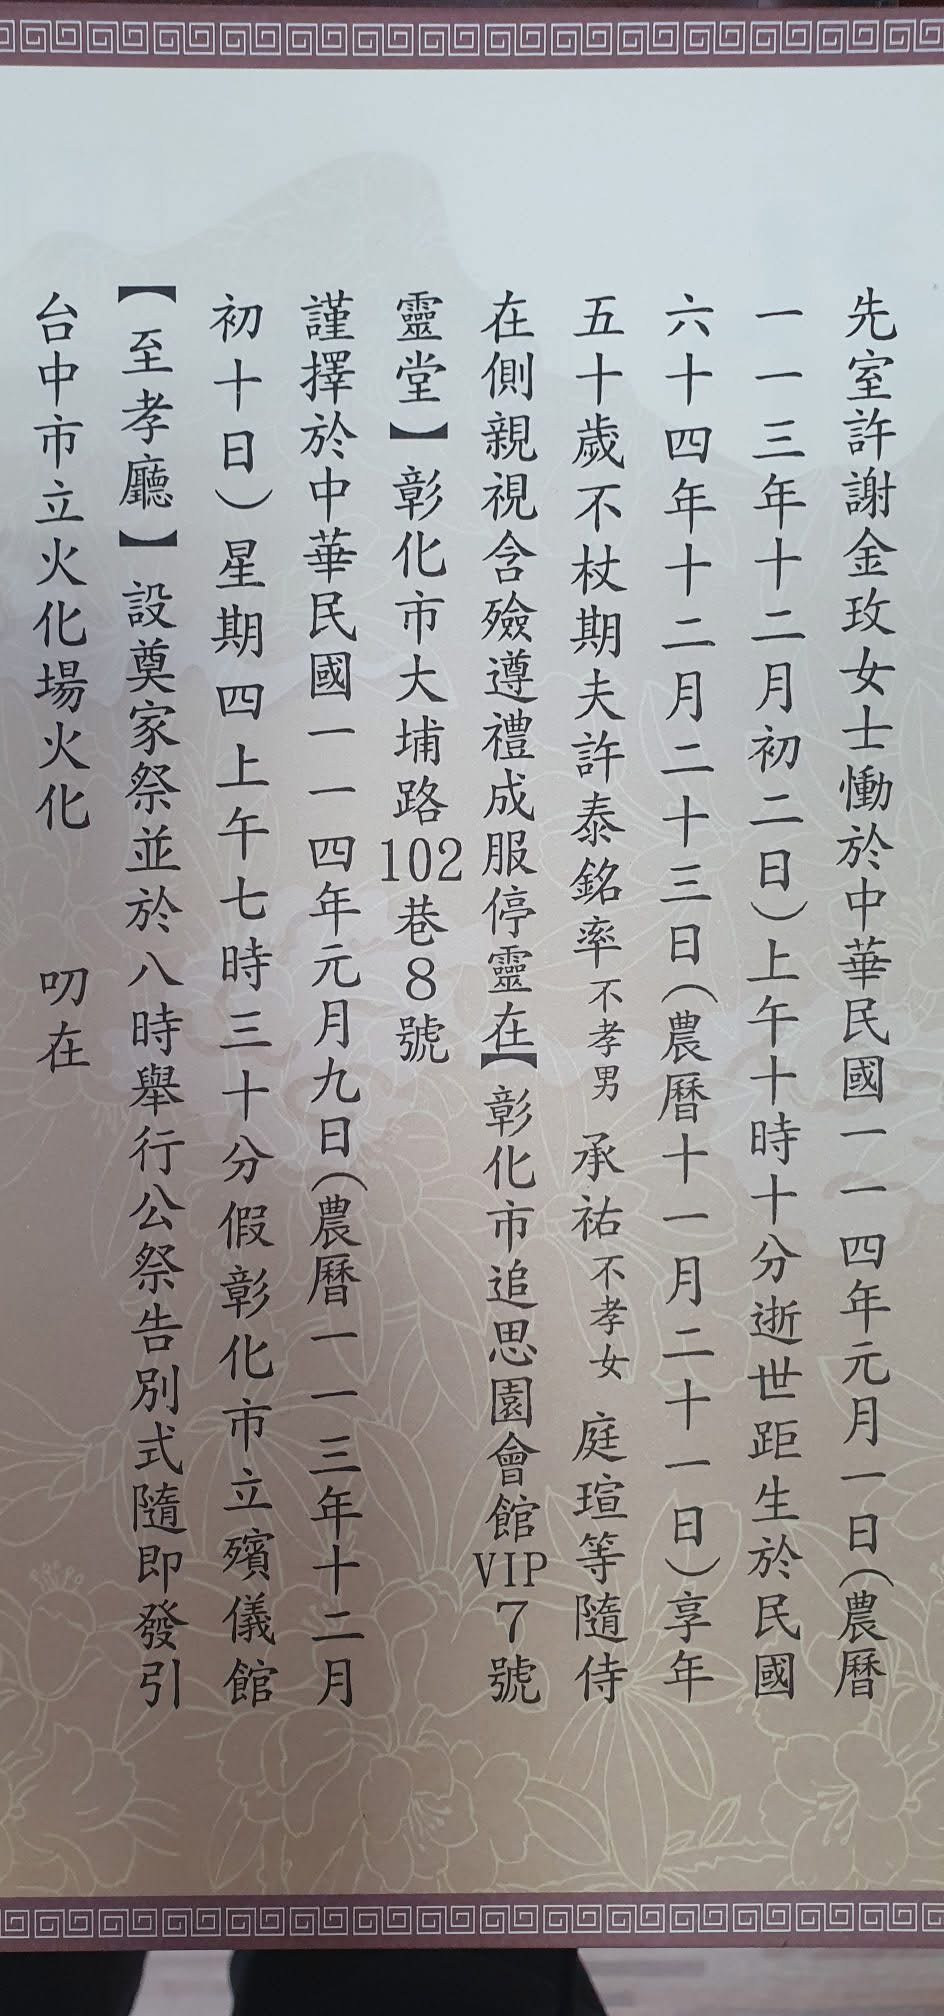 先室許謝金玫女士慟於中華民國一一四年元月一日(農曆
一一三年十二月初二日)上午十時十分逝世距生於民國
六十四年十二月二十三日(農曆十一月二十一日)享年
五十歲不杖期夫許泰銘率不孝男 承祐不孝女 庭瑄等隨侍
在側親視含殮遵禮成服停靈在【彰化市追思園會館VIP7號
靈堂】彰化市大埔路102巷8號
謹擇於中華民國一一四年元月九日(農曆一一三年十二月
初十日)星期四上午七時三十分假彰化市立殯儀館
【至孝廳】設奠家祭並於八時舉行公祭告別式隨即發引
台中市立火化場火化 叨在